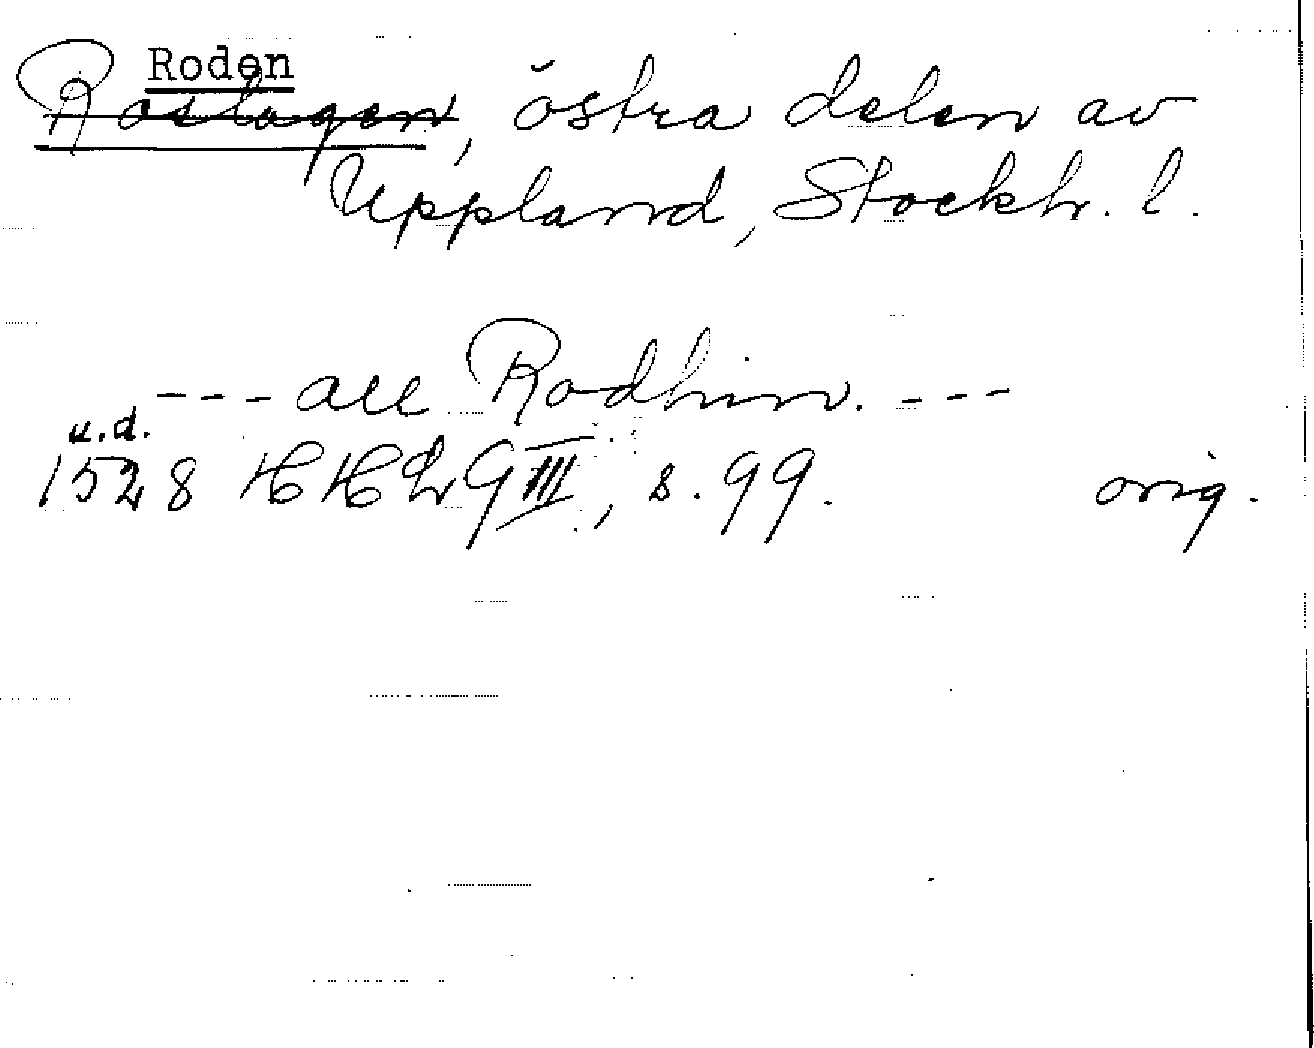 Roden
Roslagen, östra delen av
Uppland, Stockh. l.
--- all Rodhin. ---
u.d.
1528 HH LG III, s. 99. orig.